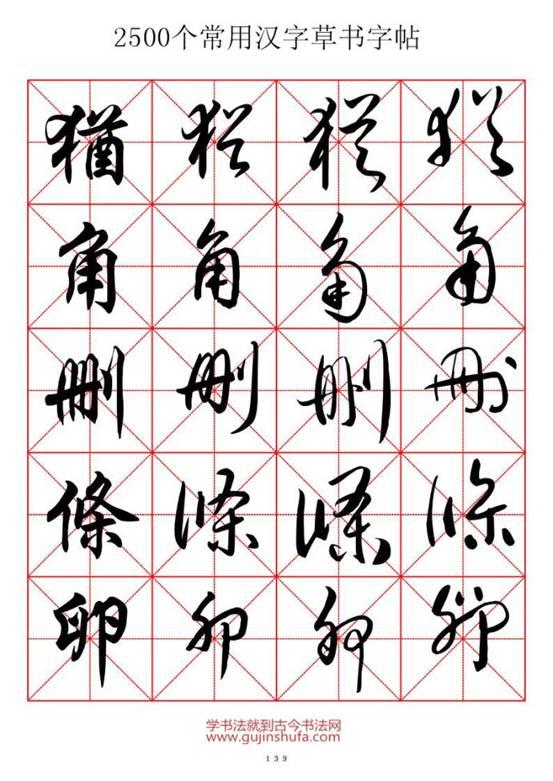 2500个常用汉字草书字帖
猶 猶 猶 猶
角 角 角 角
删 删 删 删
條 條 條 條
卵 卵 卵 卵
学书法就到古今书法网
www.gujinshufa.com
139